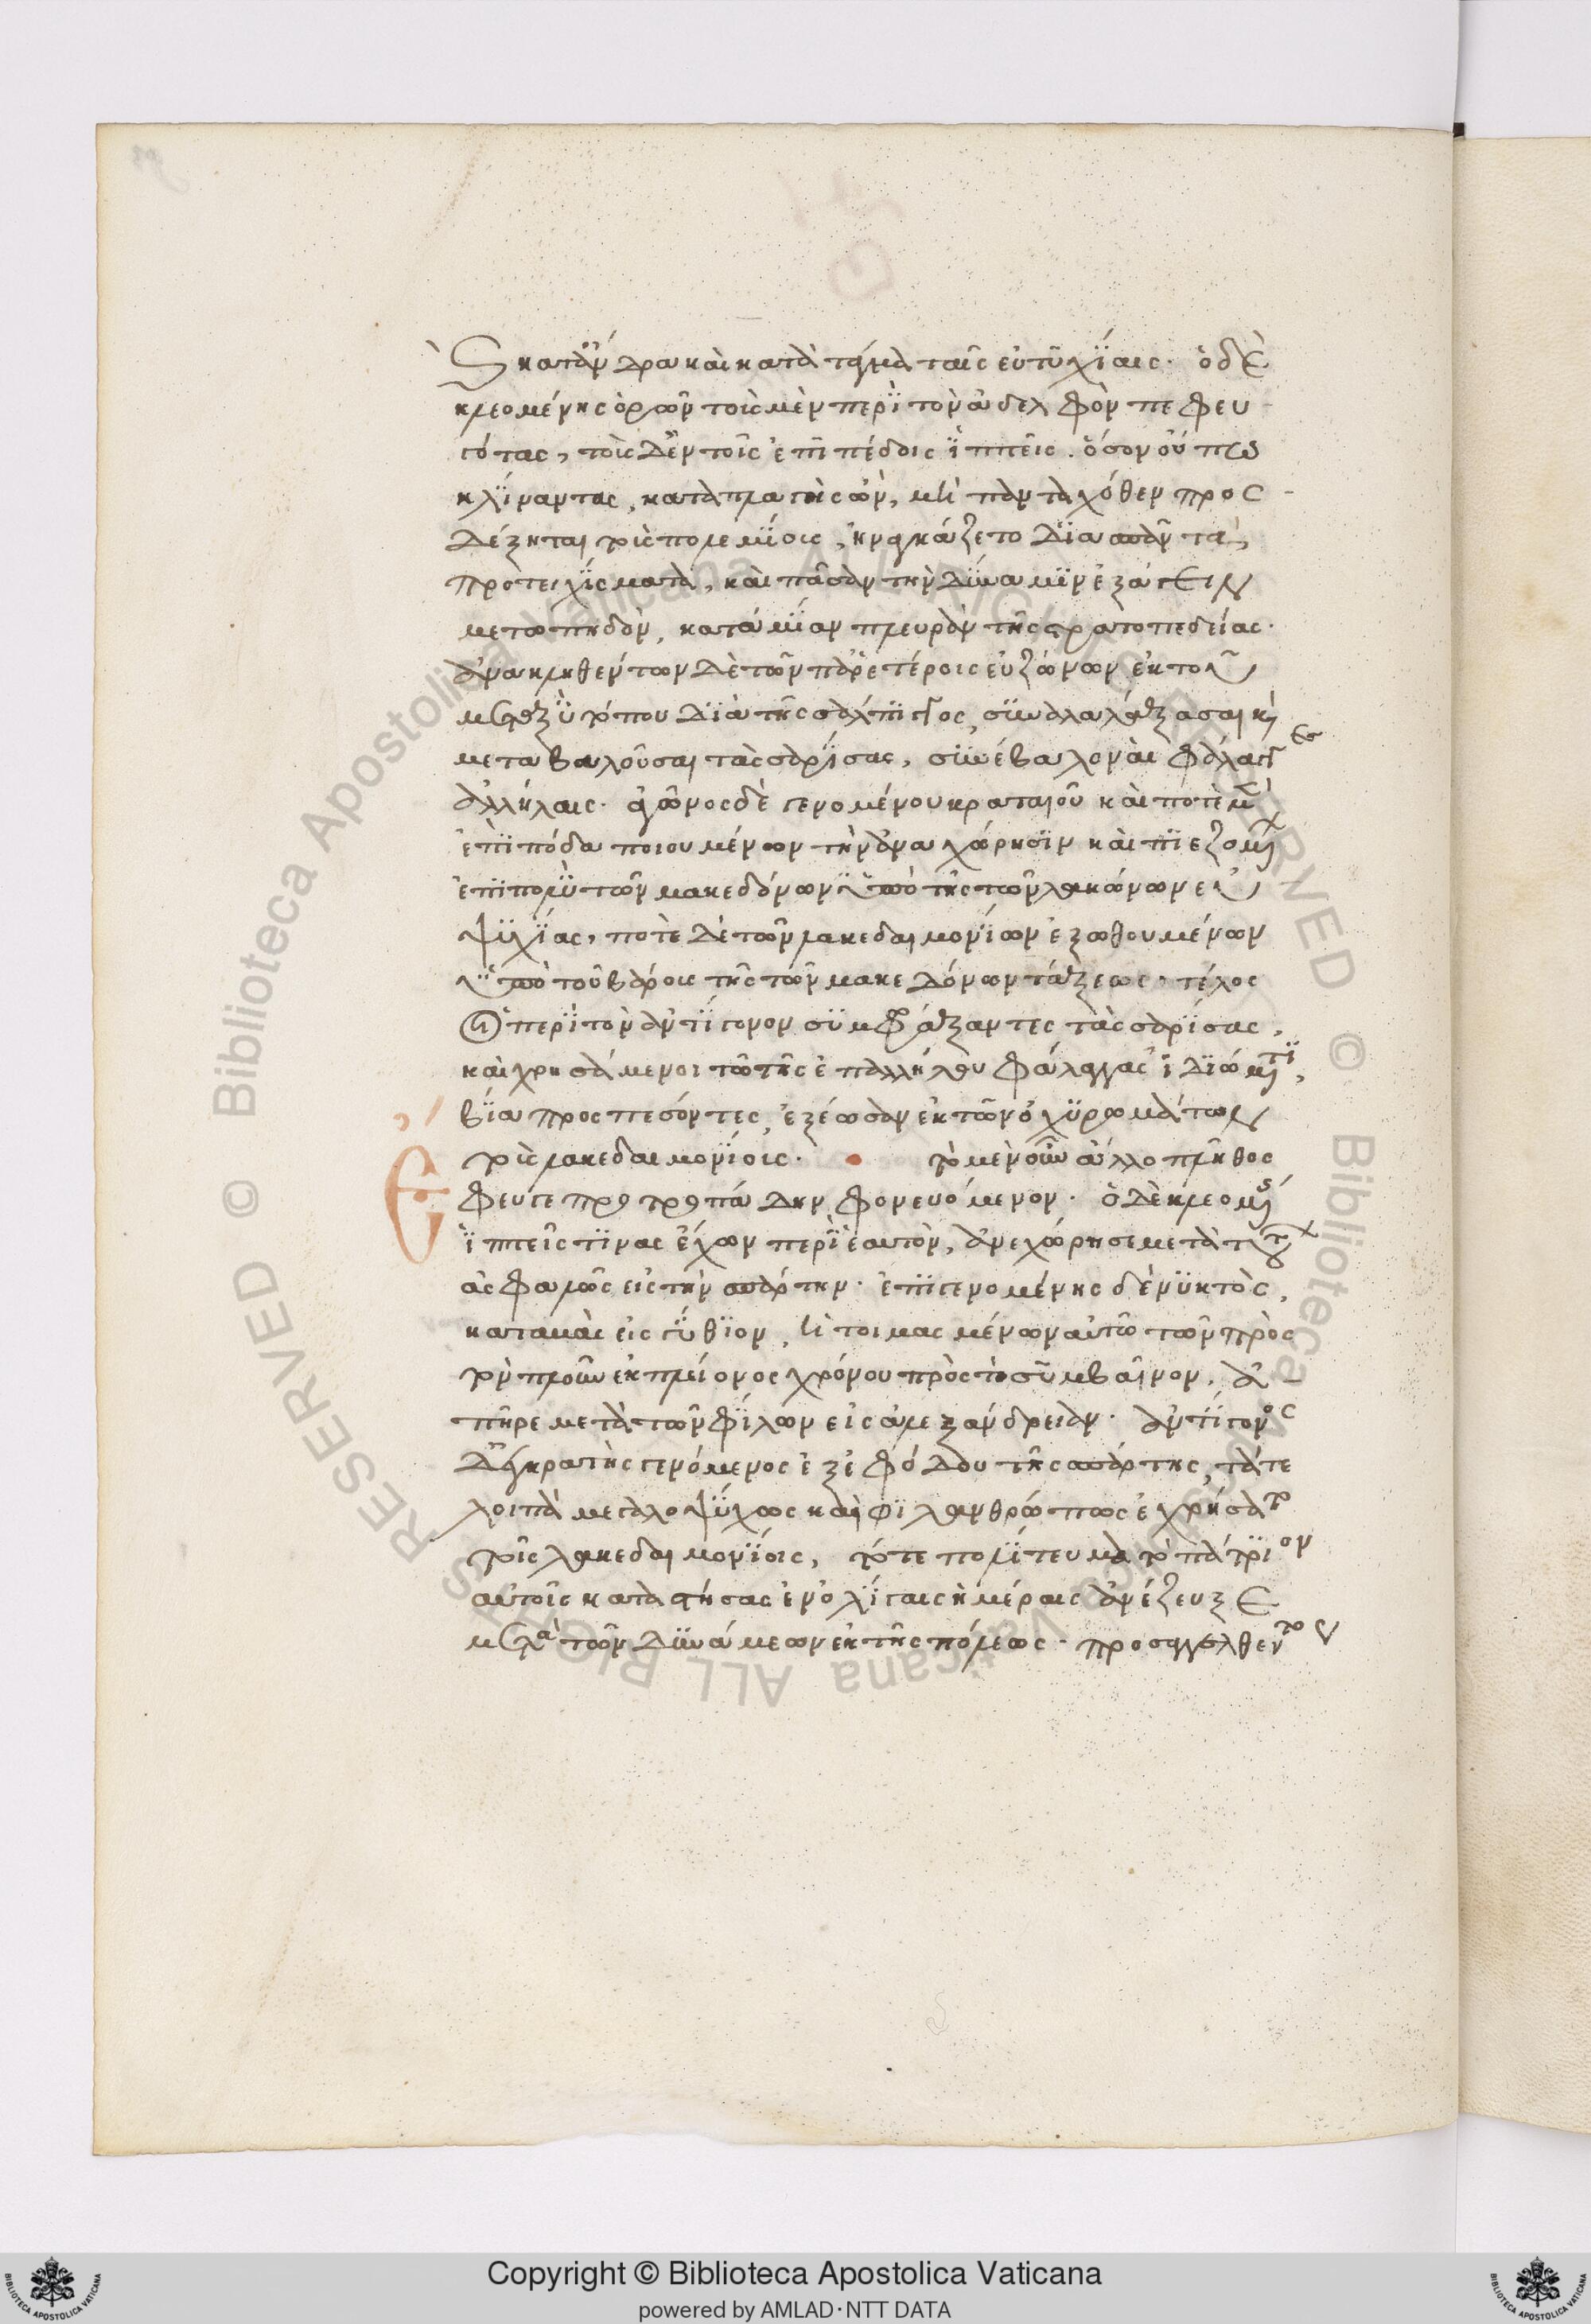 κατ' ἄνδρα καὶ κατὰ τάγμα ταῖς εὐτυχίαις· ὁ δὲ
κλεομένης ὁρῶν τοὺς μὲν περὶ τὸν ἀδελφὸν πεφευ-
γότας, τοὺς δ' ἐν τοῖς ἐπιπέδοις ἱππεῖς. ὅσον οὔπω
κλίναντας, καταπλαγὴς ὢν, μὴ πανταχόθεν προσ-
δέξηται τοὺς πολεμίους, ἠναγκάζετο διασπᾶν τὰ
προτειχίσματα, καὶ πᾶσαν τὴν δύναμιν ἐξάγειν
μετωπηδὸν, κατὰ μίαν πλευρὰν τῆς στρατοπεδείας.
ἀνακληθέντων δὲ τῶν παρ' ἑτέροις εὐζώνων ἐκ τοῦ
μεταξὺ τόπου διὰ τῆς σάλπιγγος, συναλαλάξασαι καὶ
μεταβαλοῦσαι τὰς σαρίσας, συνέβαλον αἱ φάλαγγες
ἀλλήλαις. ἀγῶνος δὲ γενομένου κραταιοῦ καὶ ποτὲ μὲν
ἐπὶ πόδα ποιουμένων τὴν ἀναχώρησιν καὶ πιεζομένων
ἐπὶ πολὺ τῶν μακεδόνων ὑπὸ τῆς τῶν λακώνων εὐ
ψυχίας, ποτὲ δὲ τῶν λακεδαιμονίων ἐξωθουμένων
ὑπὸ τοῦ βάρους τῆς τῶν μακεδόνων τάξεως· τέλος
οἱ περὶ τὸν ἀντίγονον συμφράξαντες τὰς σαρίσας,
καὶ χρησάμενοι τῶ τῆς ἐπαλλήλου φάλαγγος ἰδιώματι,
βία προσπεσόντες, ἐξέωσαν ἐκ τῶν ὀχυρωμάτων
τοὺς λακεδαιμονίους. τὸ μὲν οὖν ἄλλο πλῆθος
Ἔφευγε προτροπάδην φονευόμενον. ὁ δὲ κλεομένης
ἱππεῖς τινας ἔχων περὶ ἑαυτὸν, ἀνεχώρησε μετὰ τούτων
ἀσφαλῶς εἰς τὴν σπάρτην. ἐπιγενομένης δὲ νυκτὸς,
καταβὰς εἰς γύθιον, ἡτοιμασμένων αὐτῶ τῶν πρὸς
τὸν πλοῦν ἐκ πλείονος χρόνου πρὸς τὸ συμβαῖνον, ἀ-
πῆρε μετὰ τῶν φίλων εἰς ἀλεξάνδρειαν. ἀντίγονος
δ' ἐγκρατὴς γενόμενος ἐξ ἐφόδου τῆς σπάρτης, τά τε
λοιπὰ μεγαλοψύχως καὶ φιλανθρώπως ἐχρήσατο
τοῖς λακεδαιμονίοις, τό τε πολίτευμα τὸ πάτριον
αὐτοῖς καταστήσας ἐν ὀλίγαις ἡμέραις ἀνέζευξε
μετὰ τῶν δυνάμεων ἐκ τῆς πόλεως. προσαγγελθέντος
© Biblioteca Apostolica Vaticana ALL RIGHTS RESERVED © Biblioteca Apostolica Vaticana ALL RIGHTS RESERVED
Copyright © Biblioteca Apostolica Vaticana
powered by AMLAD·NTT DATA
BIBLIOTECA APOSTOLICA VATICANA
BIBLIOTECA APOSTOLICA VATICANA